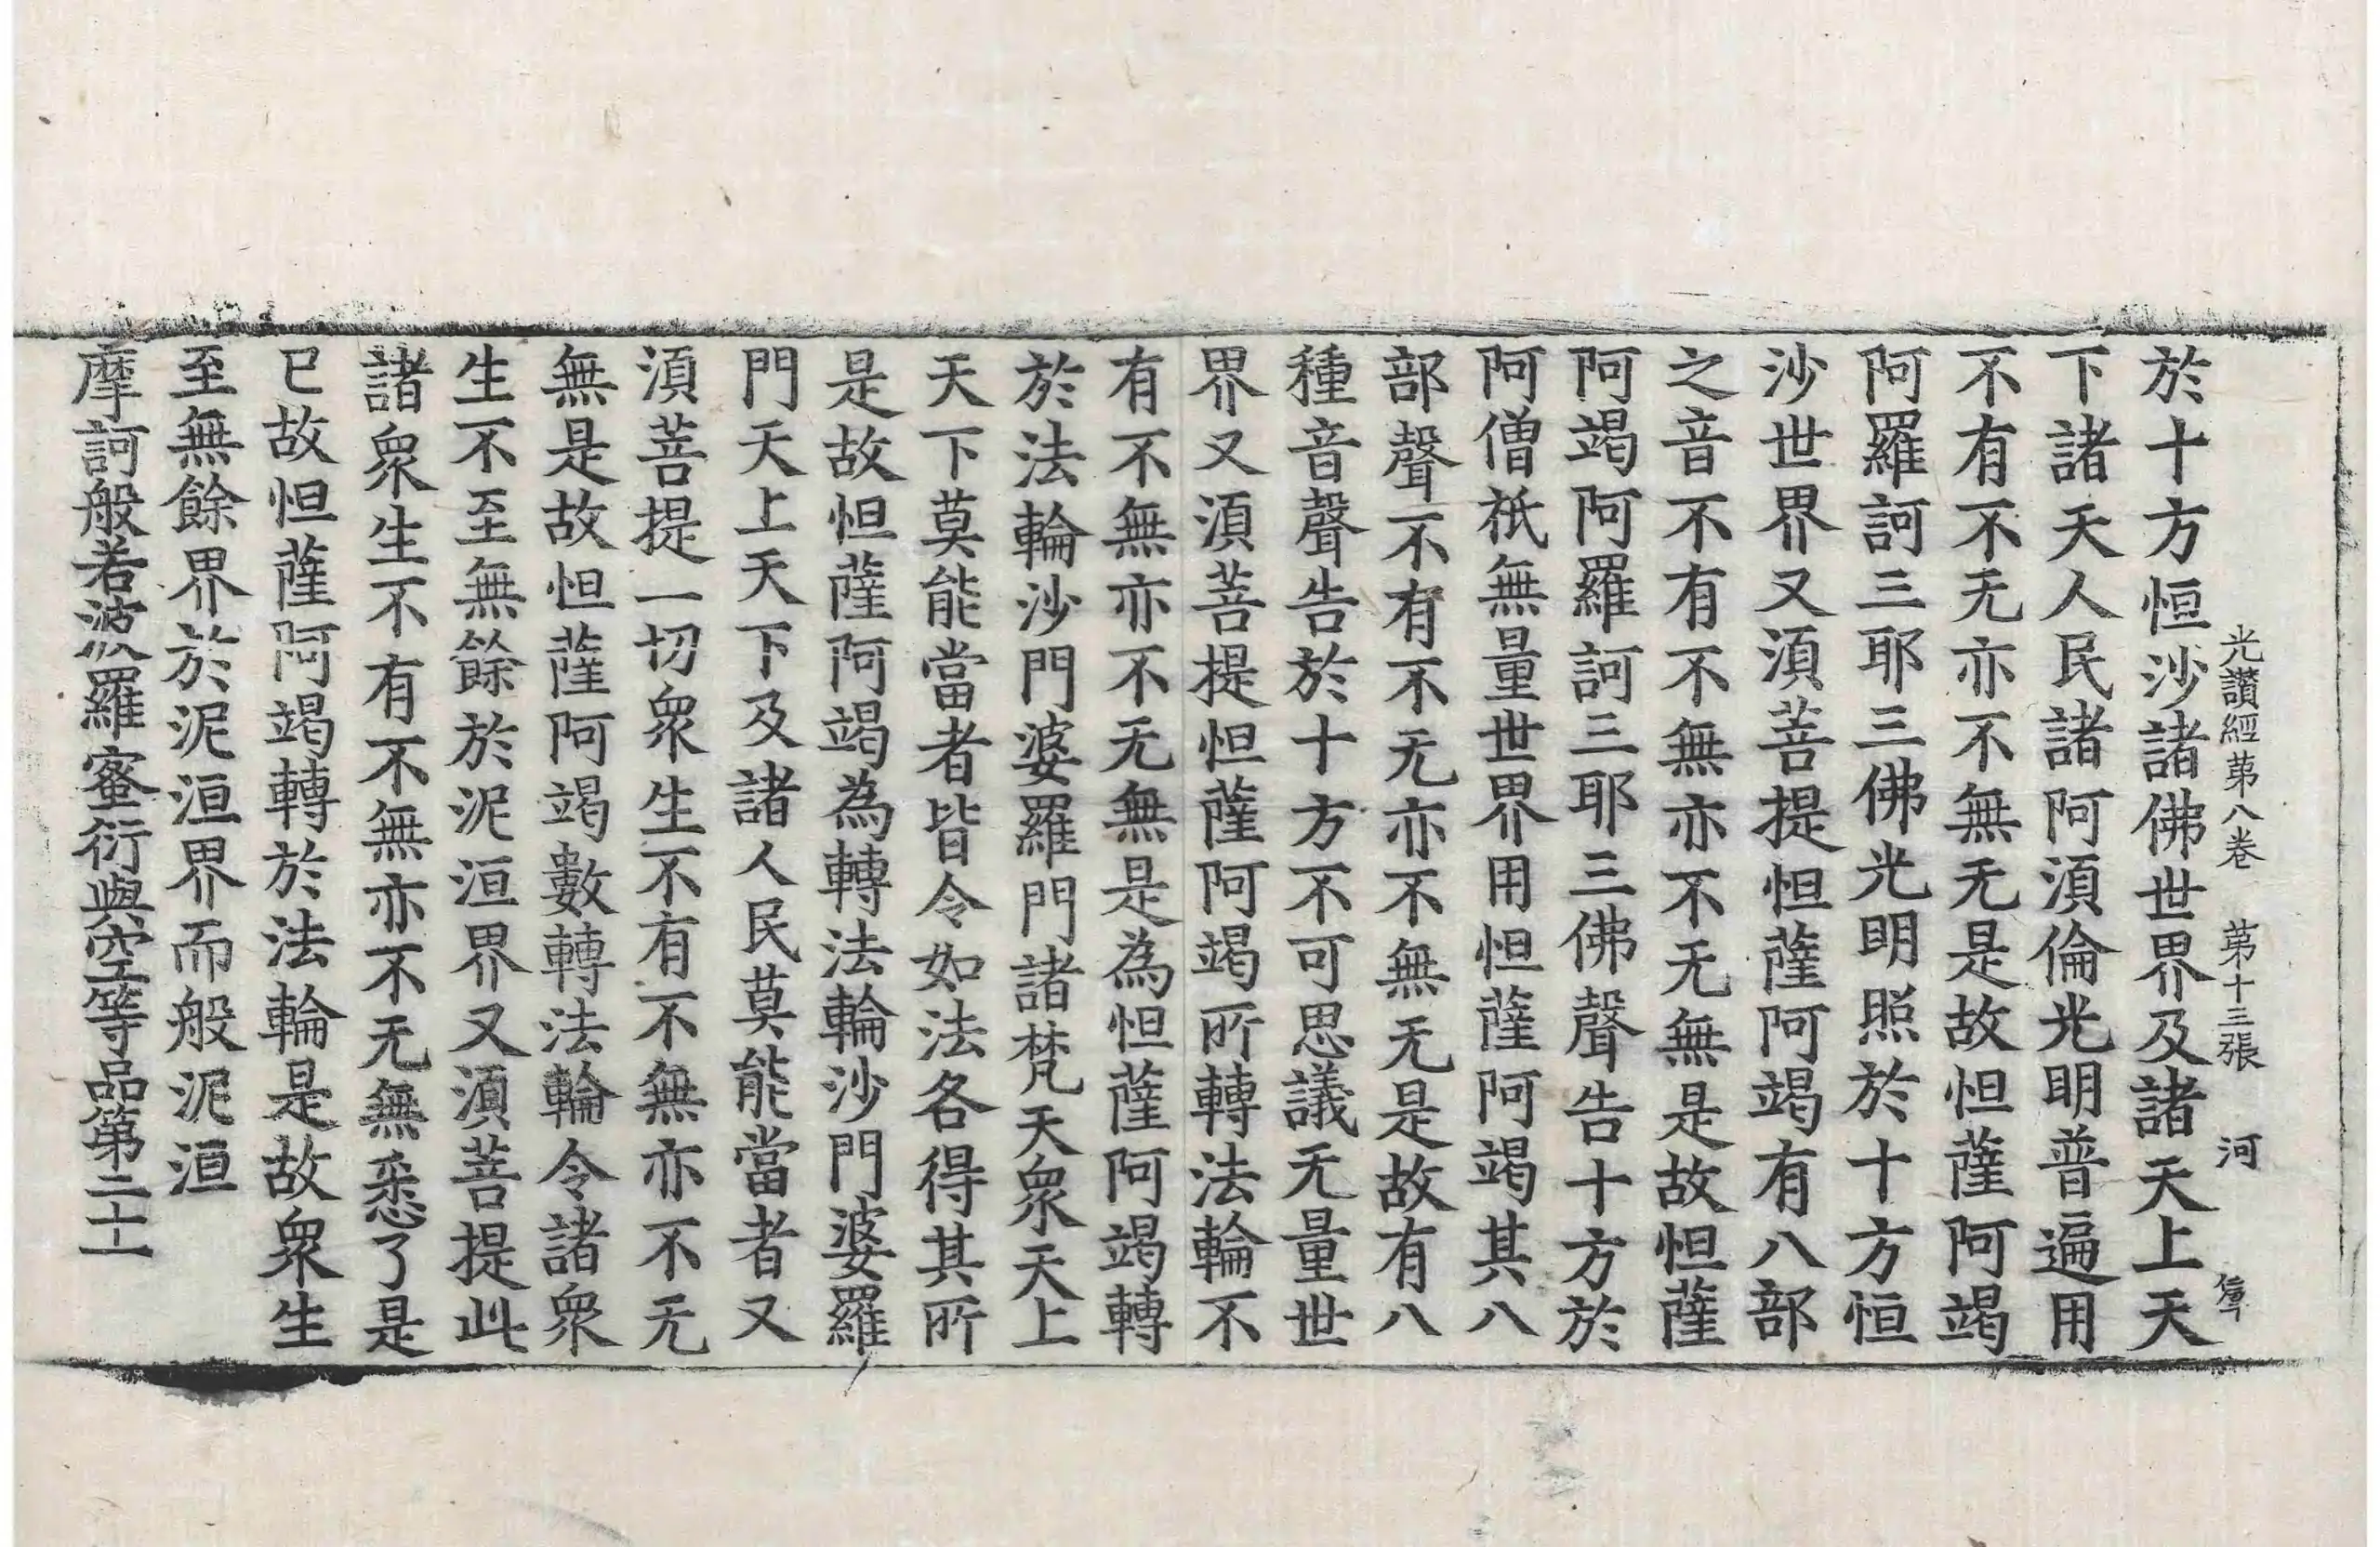 光讚經第八卷 第十三張 河
於十方恒沙諸佛世界及諸天上天
下諸天人民諸阿湏倫光明普遍用
不有不无亦不無无是故怛薩阿竭
阿羅訶三耶三佛光明照於十方恒
沙世界又湏菩提怛薩阿竭有八部
之音不有不無亦不无無是故怛薩
阿竭阿羅訶三耶三佛聲告十方於
阿僧祇無量世界用怛薩阿竭其八
部聲不有不无亦不無无是故有八
種音聲告於十方不可思議无量世
界又湏菩提怛薩阿竭所轉法輪不
有不無亦不无無是為怛薩阿竭轉
於法輪沙門婆羅門諸梵天衆天上
天下莫能當者皆令如法各得其所
是故怛薩阿竭為轉法輪沙門婆羅
門天上天下及諸人民莫能當者又
湏菩提一切衆生不有不無亦不无
無是故怛薩阿竭數轉法輪令諸衆
生不至無餘於泥洹界又湏菩提此
諸衆生不有不無亦不无無悉了是
已故怛薩阿竭轉於法輪是故衆生
至無餘界於泥洹界而般泥洹
摩訶般若波羅蜜衍與空等品第二十